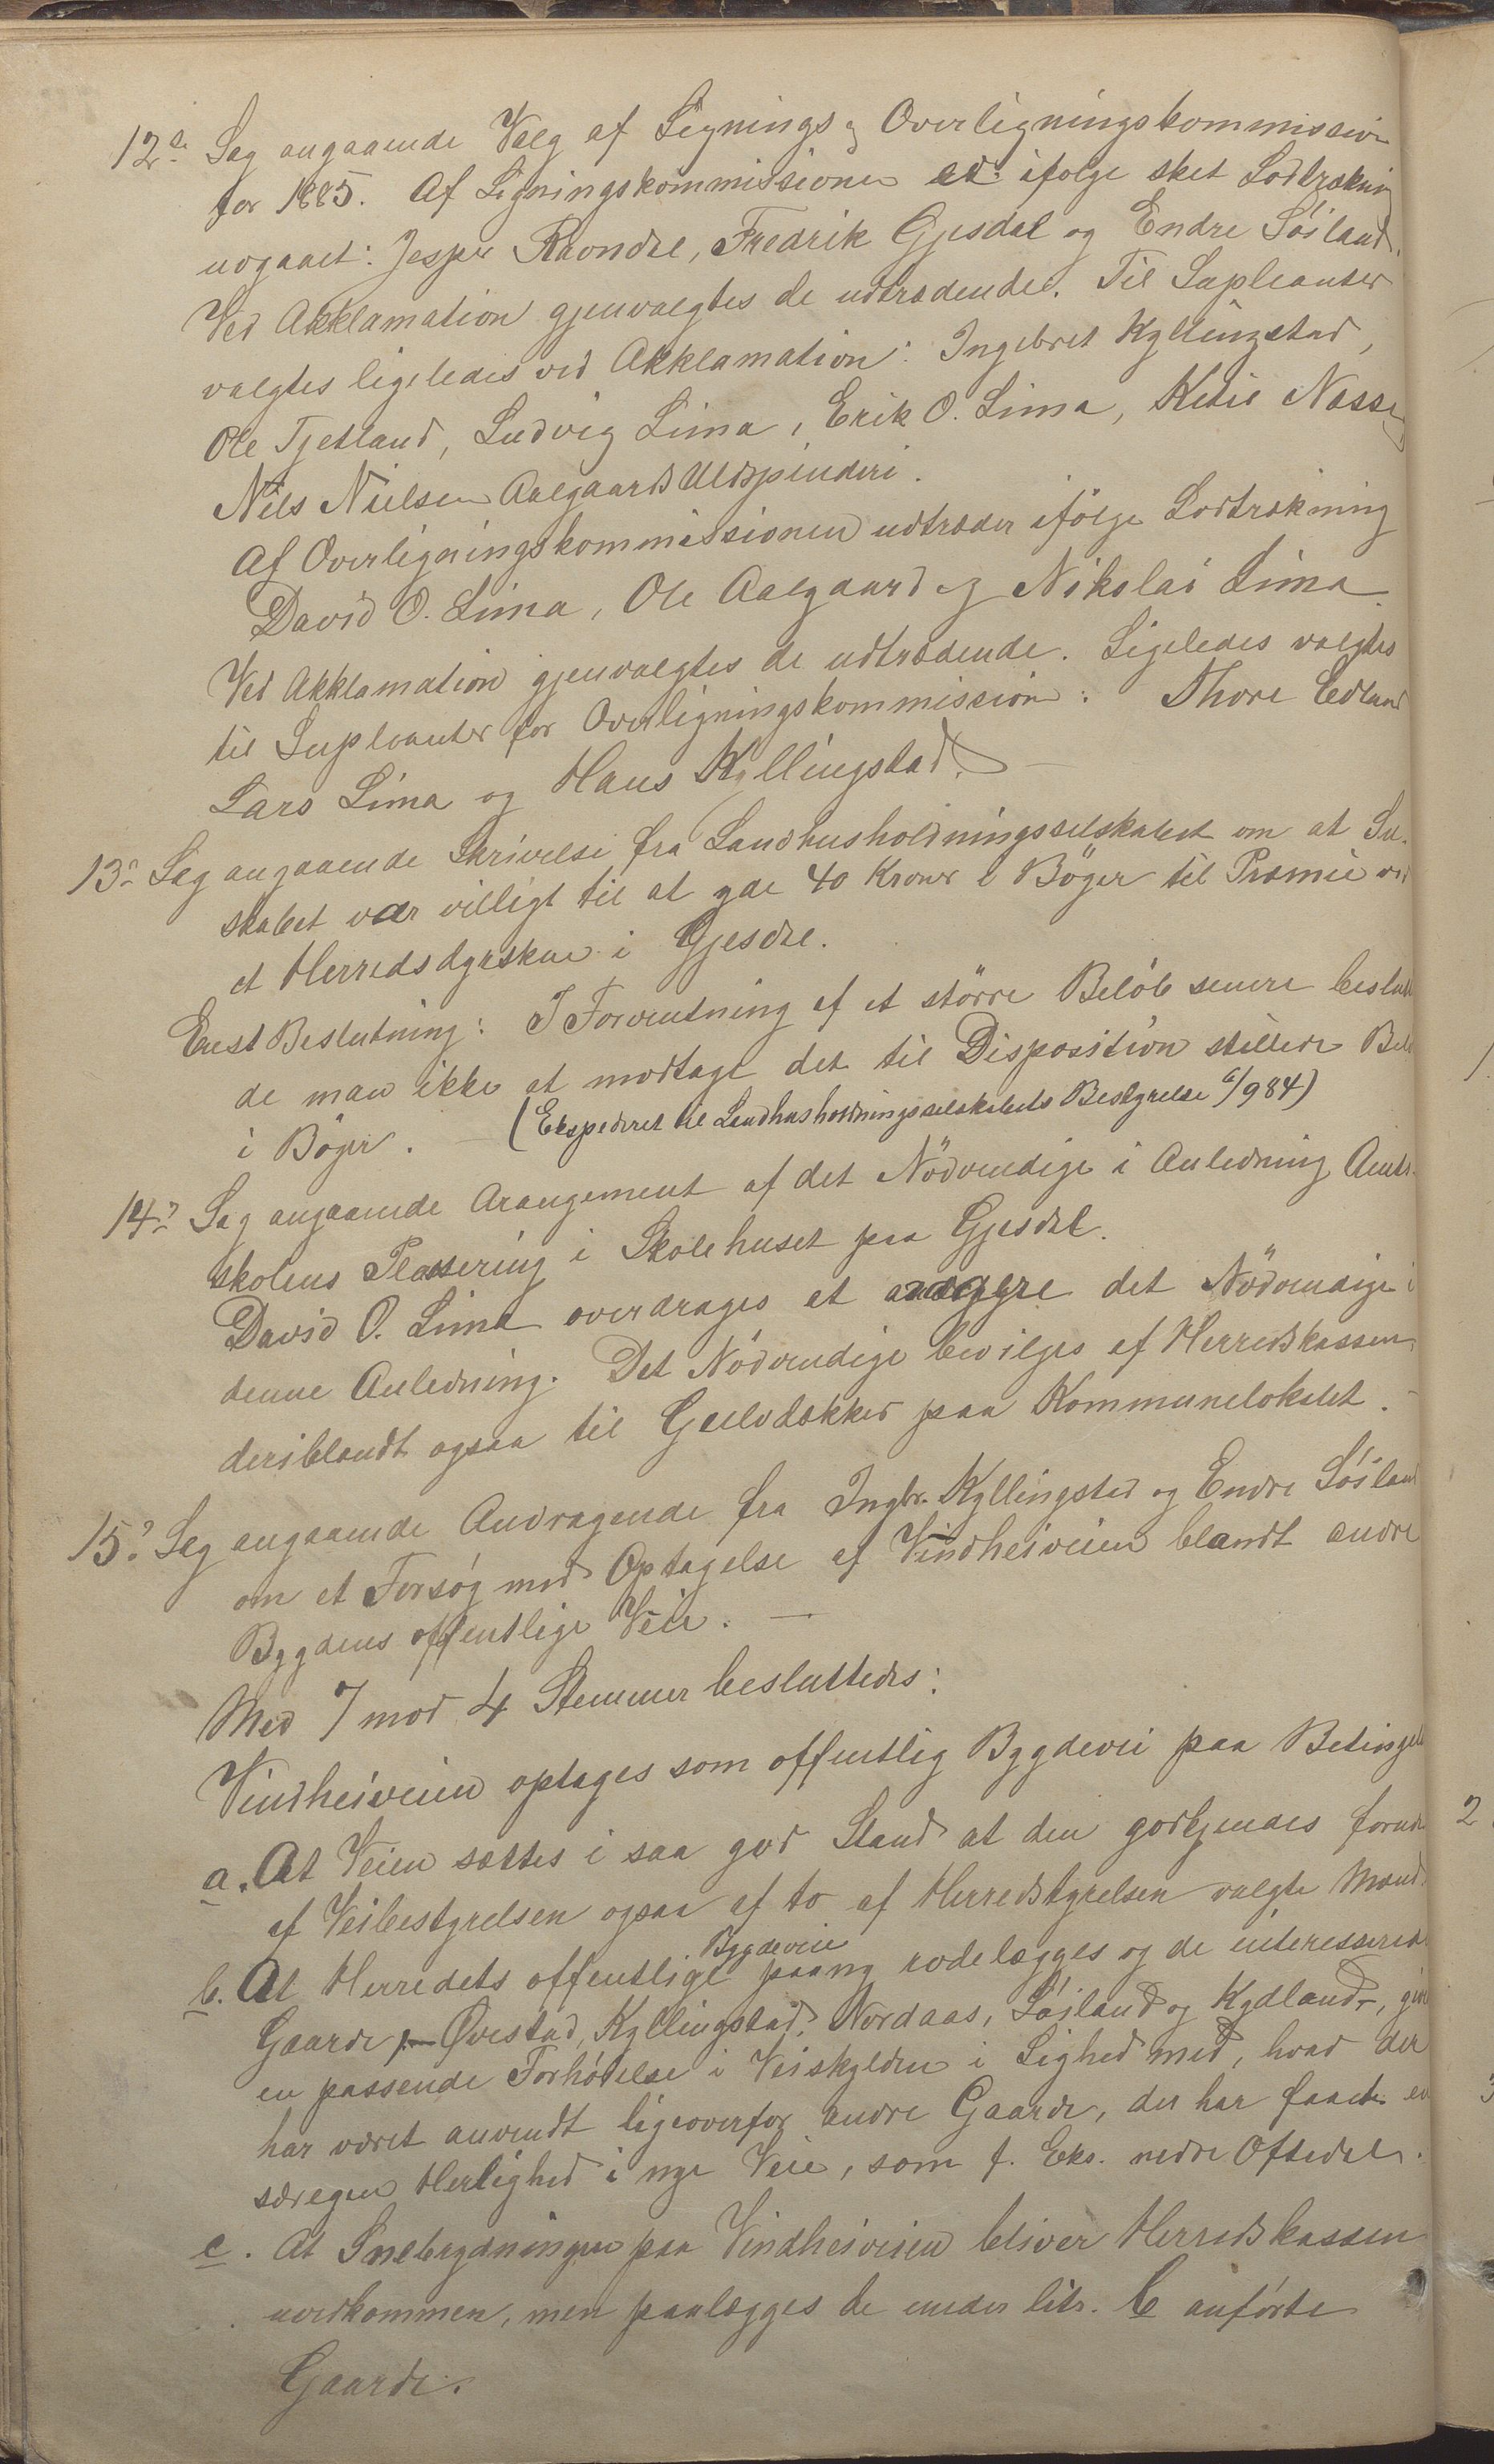 12. Sag angaaende Valg af Lignings og Overligningskommission
for 1885. Af Ligningskommissionen er ifølge sket Lodtrækning
udgaaet: Jesper Ravndal, Fredrik Gjesdal og Endre Søiland.
Ved Akklamation gjenvalgtes de udtrædende. Til Supleanter
valgtes ligeledes ved Akklamation: Ingebret Kyllingstad,
Ole Tjetland, Ludvig Lima, Erik O. Lima, Ketil Næsse
Nils Nielsen Aalgaards Uldspinderi.
Af Overligningskommissionen udtræder ifølge Lodtrækning
David O. Lima, Ole Aalgaard og Nikolai Lima.
Ved Akklamation gjenvalgtes de udtrædende. Ligeledes valgtes
til Supleanter for Overligningskommission: Thore Edland
Lars Lima og Hans Kyllingstad.
13. Sag angaaende Skrivelse fra Landhusholdningsselskabet om at Sel-
skabet var villigt til at yde 40 Kroner i Bøger til Præmie ved
et Herredsdyrskue i Gjesdal.
Enst Beslutning: I Forventning af et større Beløb senere beslut
de man ikke at modtage det til Disposition stillede Bel
i Bøger. (Ekspederet til Landhusholdningsselskabets Bestyrelse 6/9 84)
14. Sag angaaende Arangement af det Nødvendige i Anledning Amts-
skolens Plassering i Skolehuset paa Gjesdal.
David O. Lima overdrages at det Nødvendige i
denne Anledning. Det Nødvendige bevilges af Herredskassen,
deriblandt ogsaa til Gulvdækker paa Kommunelokalet.
15. Sag angaaende Andragende fra Ingbr. Kyllingstad og Endre Søiland
om et Forsøg med Optagelse af Vindheiveien blandt andre
Bygdens offentlige Veie.
Med 7 mod 4 Stemmer besluttedes:
Vindheiveien optages som offentlig Bygdevei paa Betingelse
a. At Veien sættes i saa god Stand at den godkjendes foruden
af Veibestyrelsen ogsaa af to af Herredstyrelsen valgte Mænd.
Bygdeveie
b. At Herredets offentlige paany rodelægges og de interesserede
Gaarde, Øvestad, Kyllingstad, Nordaas, Søiland og Kydland, give
en passende Forhøielse i Veiskylden i Lighed med, hvad der
har været anvendt ligeoverfor andre Gaarde, der har faaet en
særegen Herlighed i nye Veie, som f. Eks. nedre Oftedal.
c. At Snebrydningen paa Vindheiveien bliver Herredskassen
uvedkommen, men paalægges de under litr. b anførte
Gaarde.